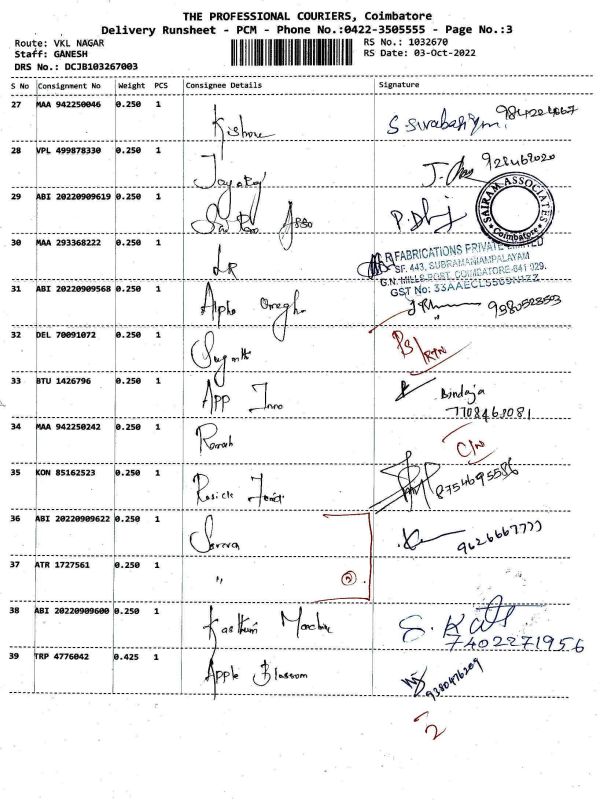 THE PROFESSIONAL COURIERS, Coimbatore
Delivery Runsheet - PCM - Phone No.:0422-3505555 - Page No.:3
Route: VKL NAGAR
RS No.: 1032670
Staff: GANESH
RS Date: 03-Oct-2022
DRS No.: DCJB103267003
S No Consignment No Weight PCS Consignee Details Signature
27 MAA 942250046 0.250 1 Kishore
28 VPL 499878330 0.250 1
29 ABI 20220909619 0.250 1
SAIRAM ASSOCIATES
* Coimbatore *
30 MAA 293368222 0.250 1 LR
R FABRICATIONS PRIVATE LIMITED
SF. 443, SUBRAMANIAMPALAYAM
G.N. MILLS POST, COIMBATORE-641 029.
GST No:
31 ABI 20220909568 0.250 1 Alpha
32 DEL 70091072 0.250 1
33 BTU 1426796 0.250 1 App Inno Bindaja
7708463081
34 MAA 942250242 0.250 1 C/N
35 KON 85162523 0.250 1 8754695586
36 ABI 20220909622 0.250 1 9626667777
37 ATR 1727561 0.250 1 " 2
38 ABI 20220909600 0.250 1 S. 
7402271956
39 TRP 4776042 0.425 1 Apple Blossom 9380476209
2